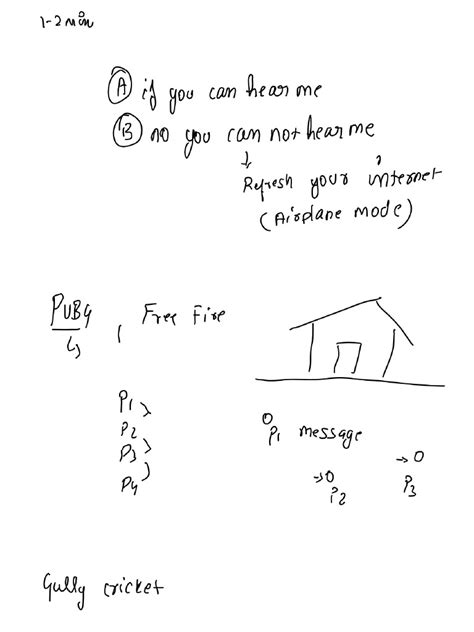 1-2 min
A if you can hear me
B no you can not hear me
↓
Refresh your internet
(Airplane mode)
PUBG , Free Fire
↳
P1
P2
P3
P4
P1 message
→O P2
→O P3
Gully cricket